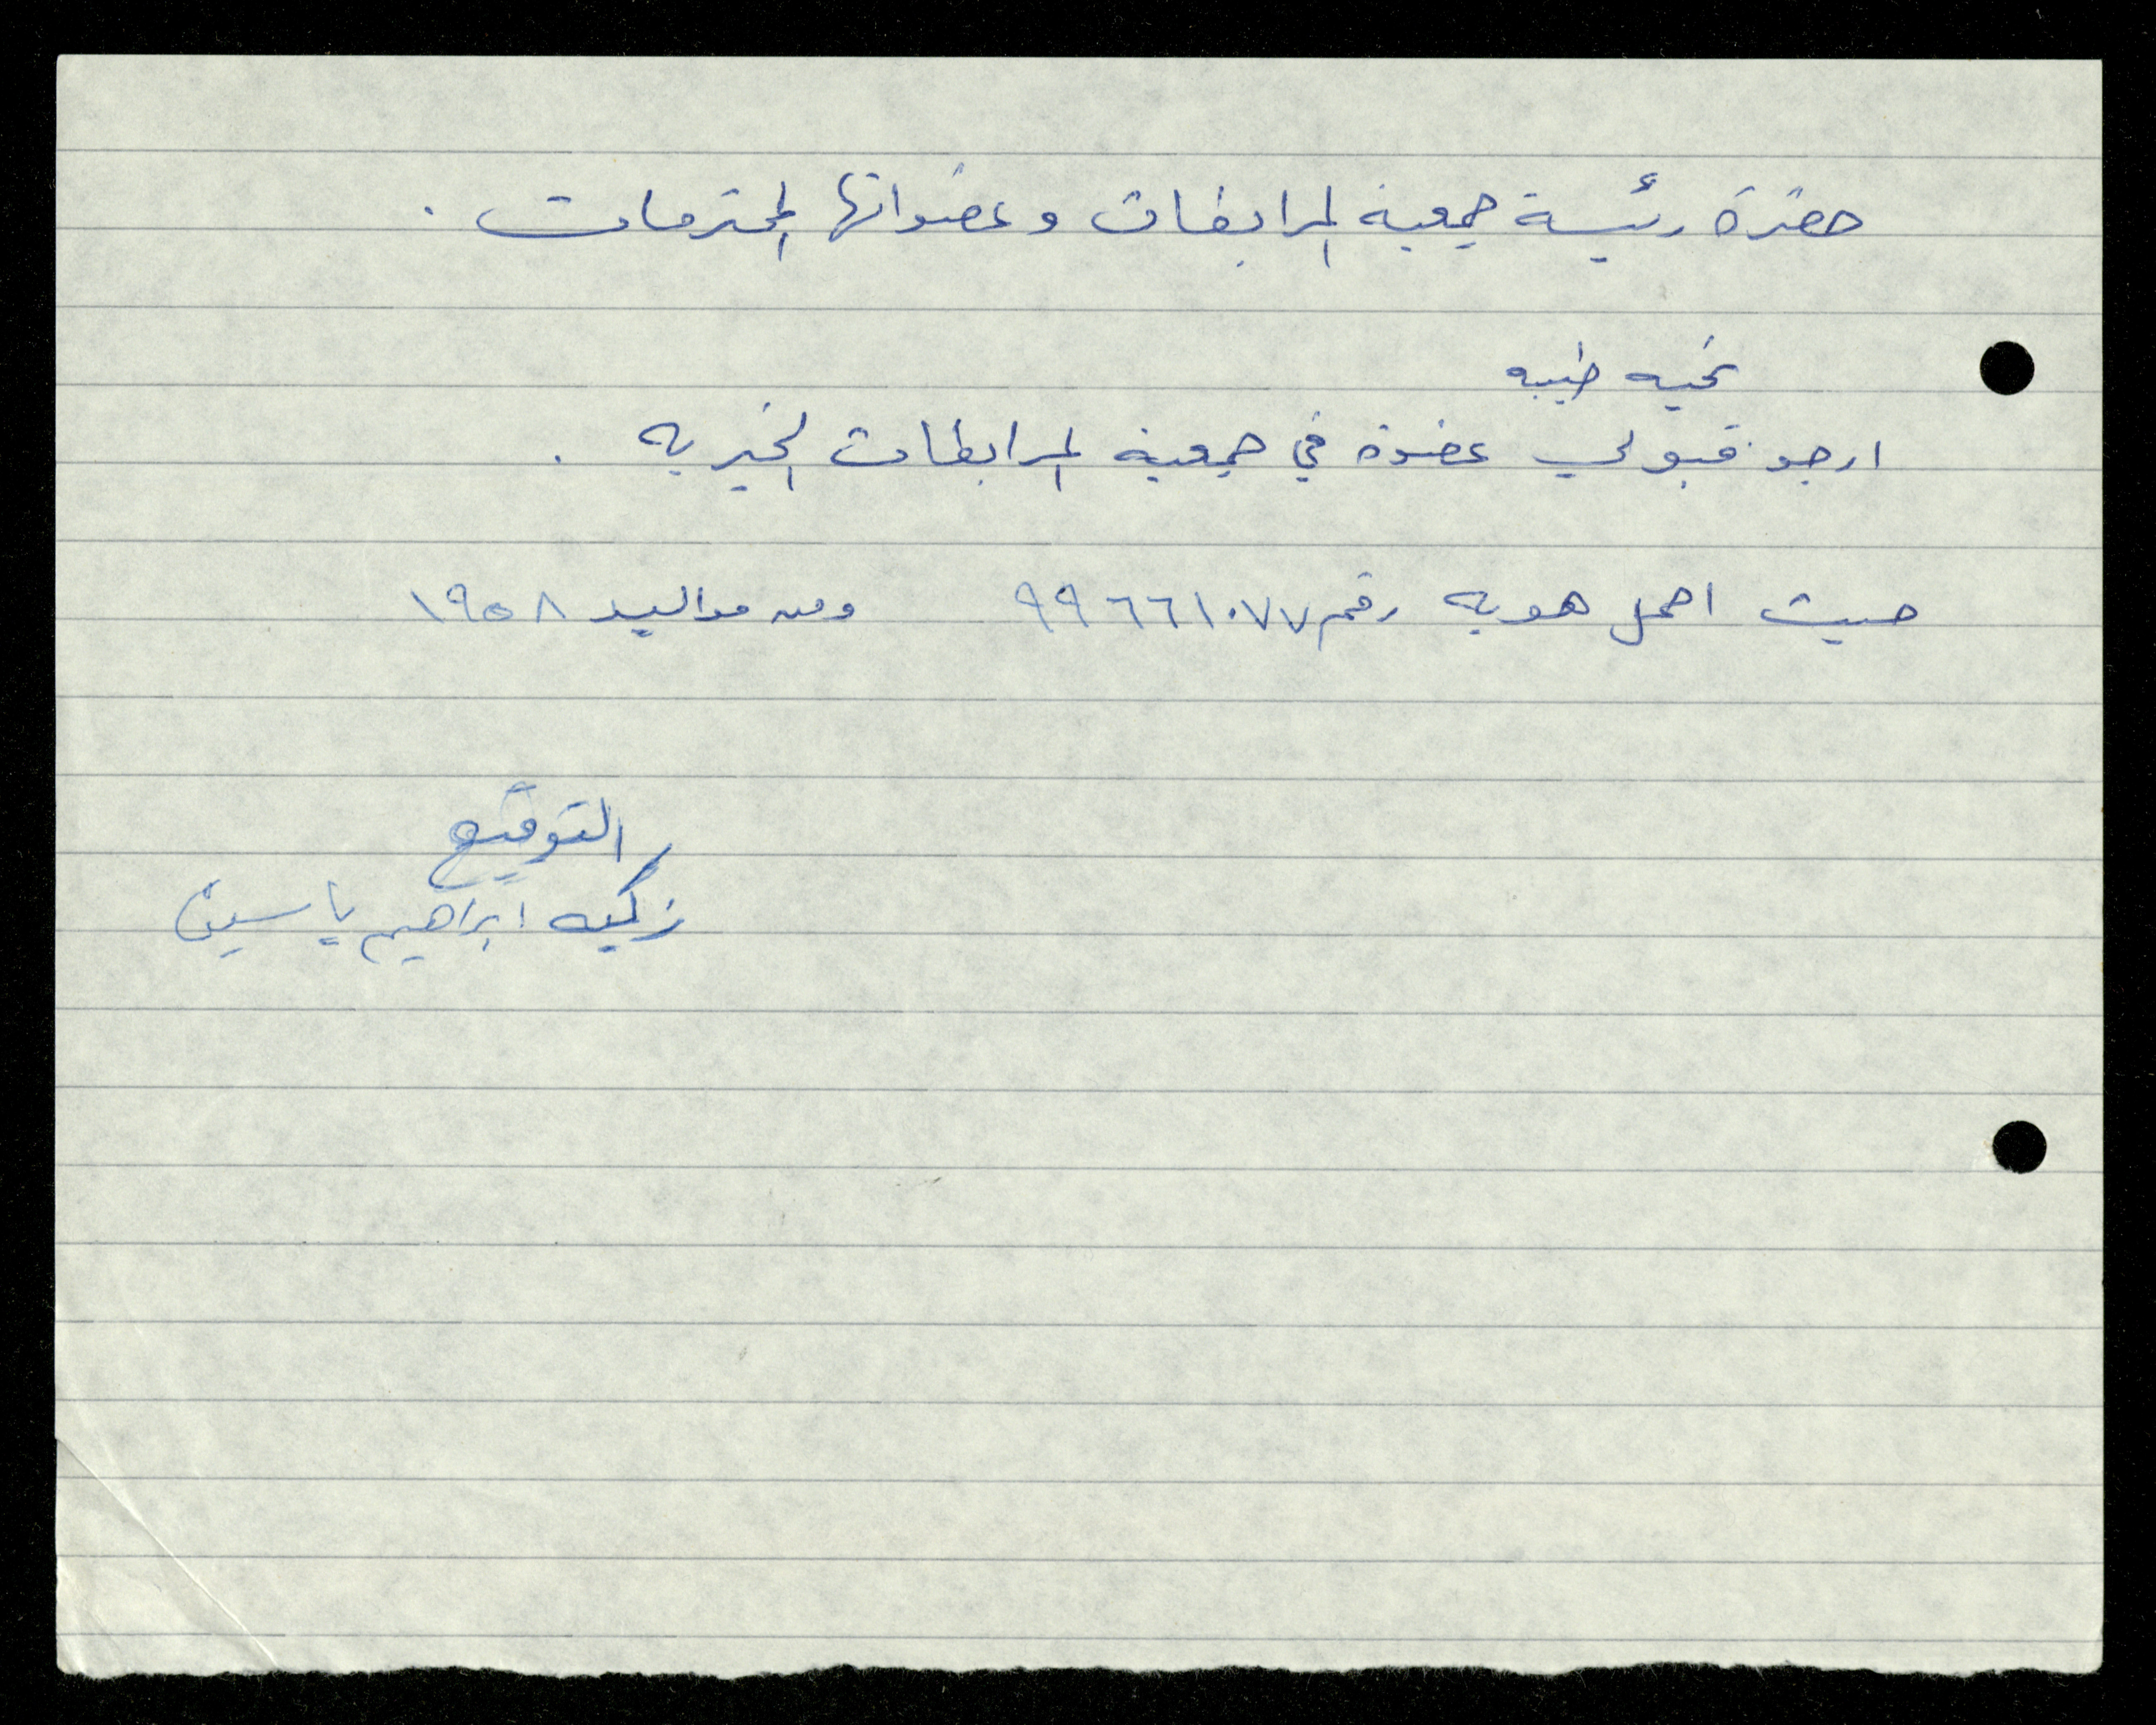 حضرة رئيسة جمعية المرابطات وعضواتها المحترمات .
تحيه طيبه
ارجو قبولي عضوة في جمعية المرابطات الخيريه .
حيث احمل هويه رقم ٩٩٦٦١٠٧٧ ومن مواليد ١٩٥٨
التوقيع
زكيه ابراهيم ياسين